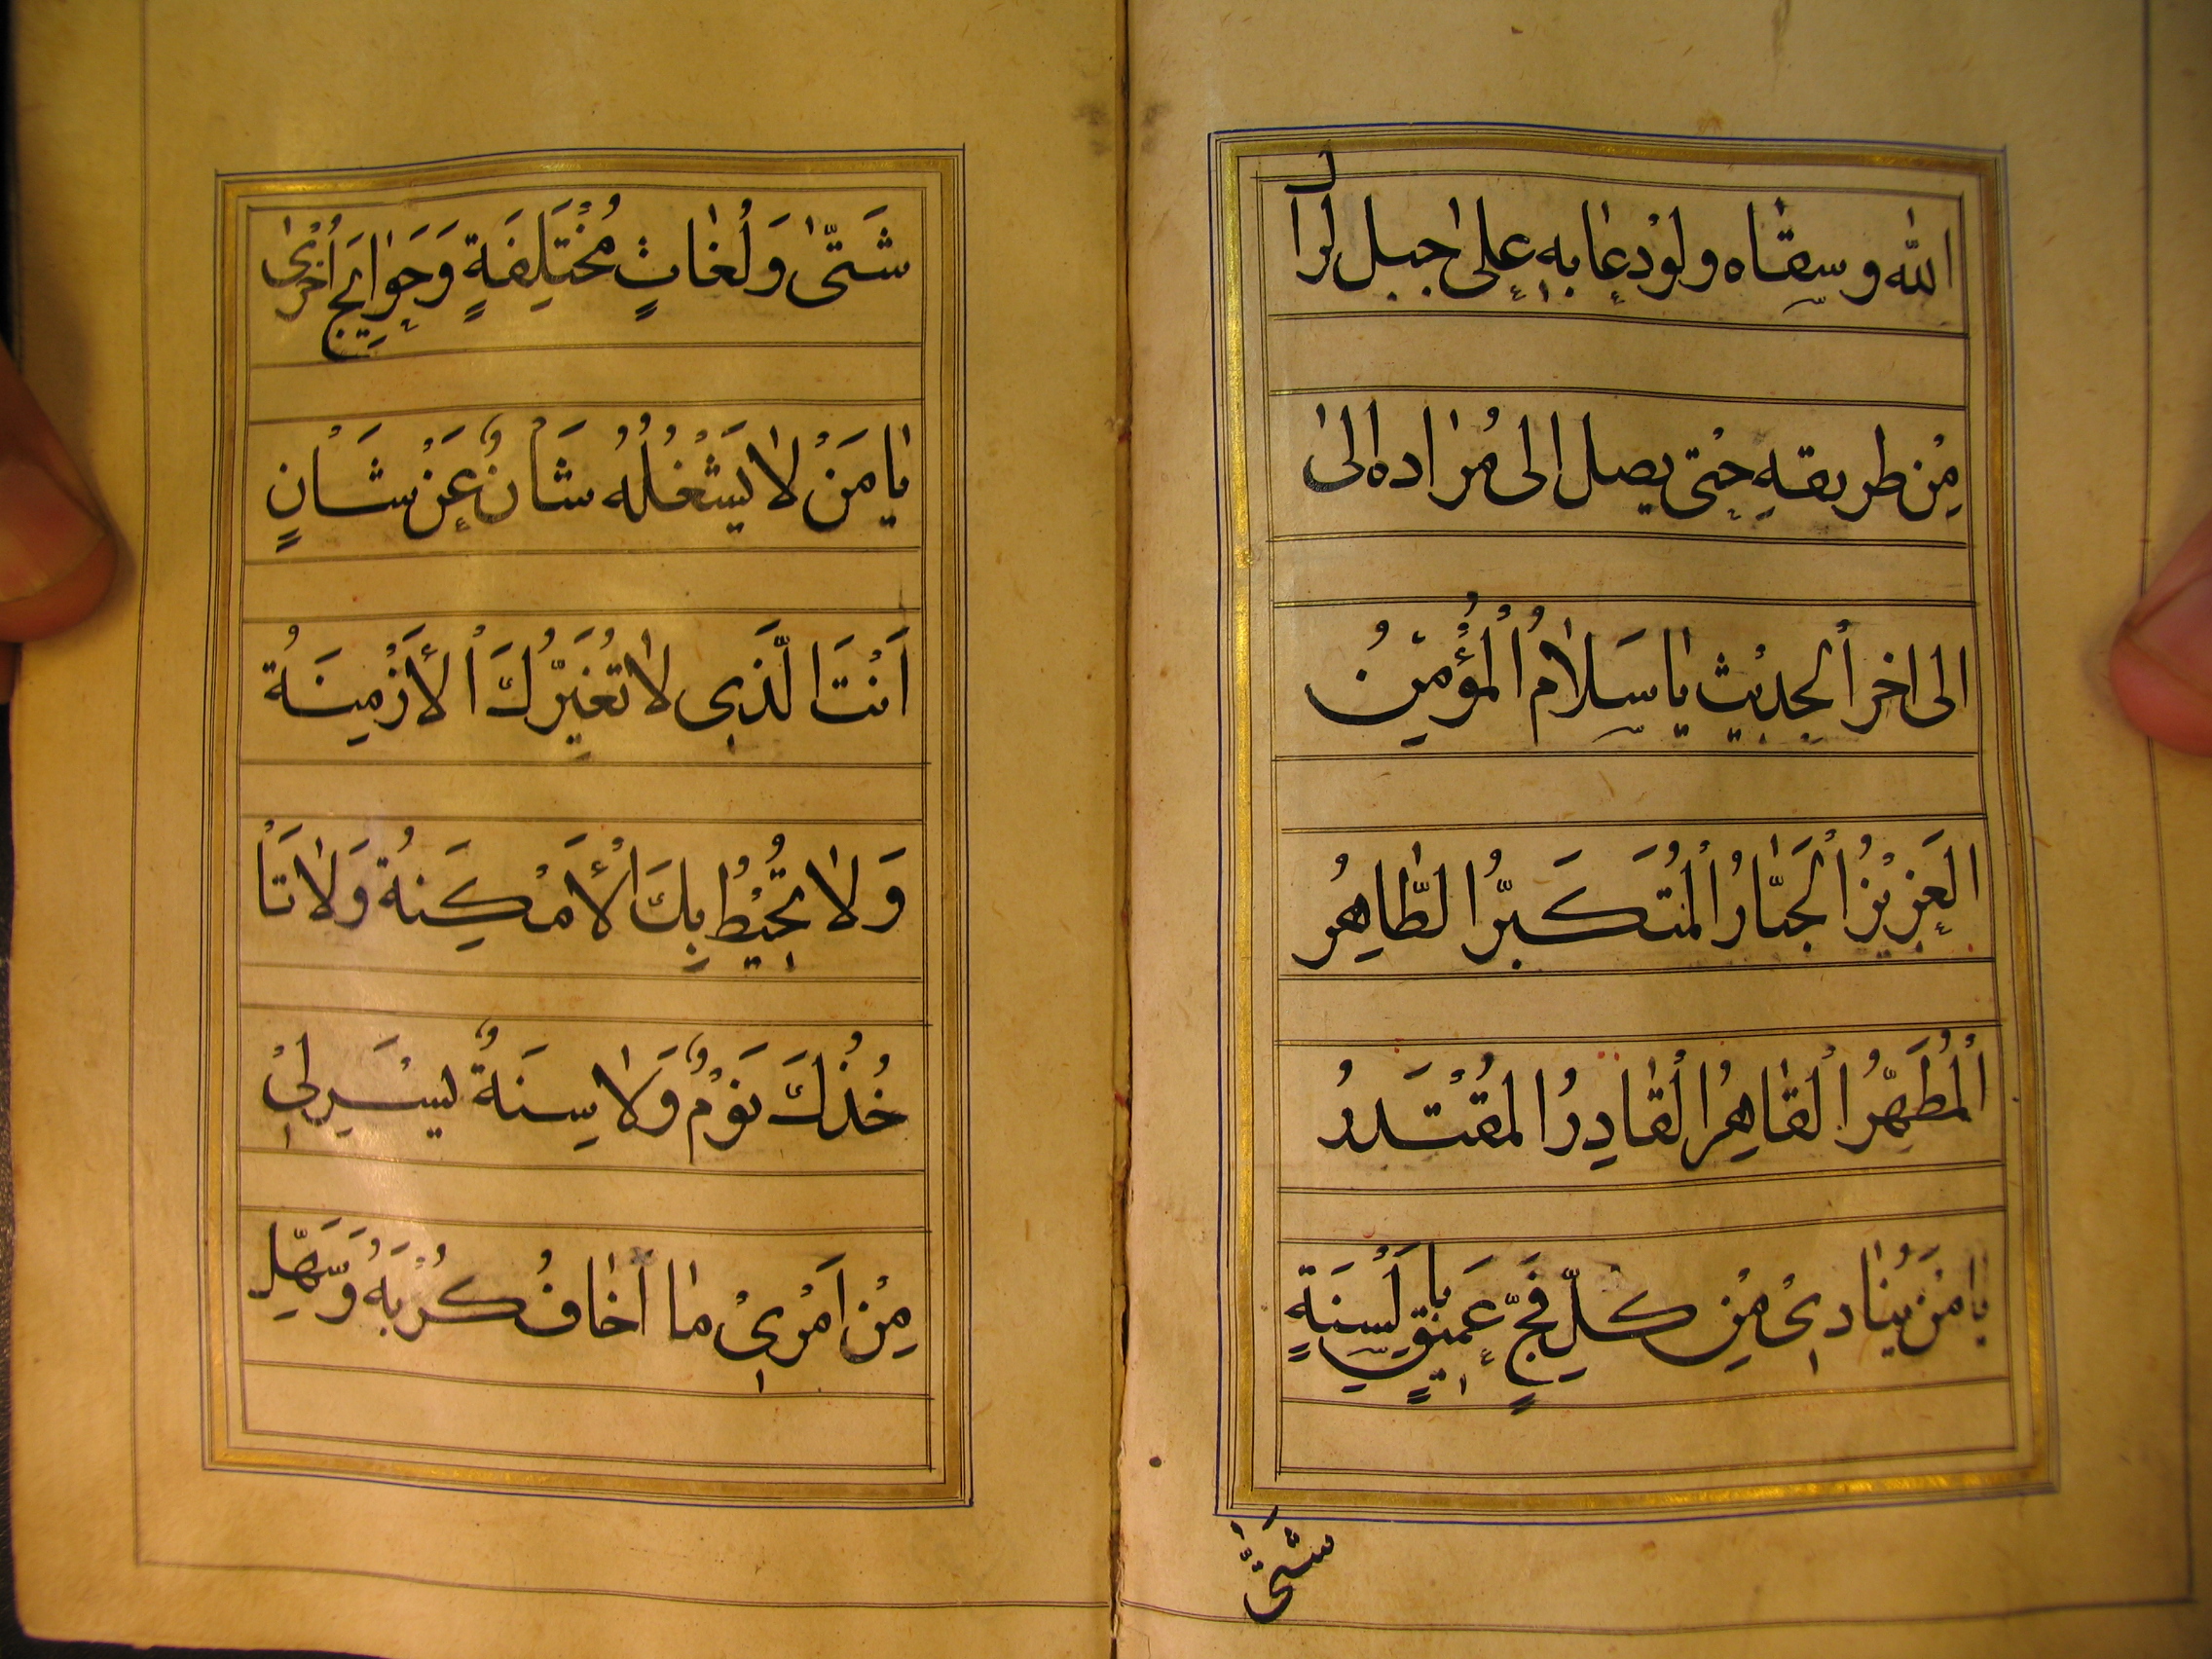 الله وسقاه ولو دعا به على جبل لزال
من طريقه حتى يصل الى مراده الى
الى اخر الحديث يا سَلامُ الْمُؤْمِنُ
العَزِيْزُ الْجَبّارُ الْمُتَكَبِّرُ الطّاهِرُ
الْمُطَهِّرُ الْقاهِرُ الْقادِرُ المُقْتَدِرُ
يا مَنْ يُنادىْ مِنْ كُلِّ فَجٍّ عَمِيْقٍ بِاَلْسِنَةٍ
شَتّى
شَتّى وَلُغاتٍ مُخْتَلِفَةٍ وَحَوايِجَ اُخْرىْ
يا مَنْ لا يَشْغُلُهُ شَاْنٌ عَنْ شَاْنٍ
اَنْتَ الَّذى لا تُغَيِّرُكَ الْأَزْمِنَةُ
وَلا تُحِيْطُ بِكَ الْأَمْكِنَةُ وَلا تَاْ
خُذُكَ نَوْمٌ وَلا سِنَةٌ يَسِّرْ لىْ
مِنْ اَمْرىْ ما اَخافُ كُرْبَهُ وَسَهِّلْ